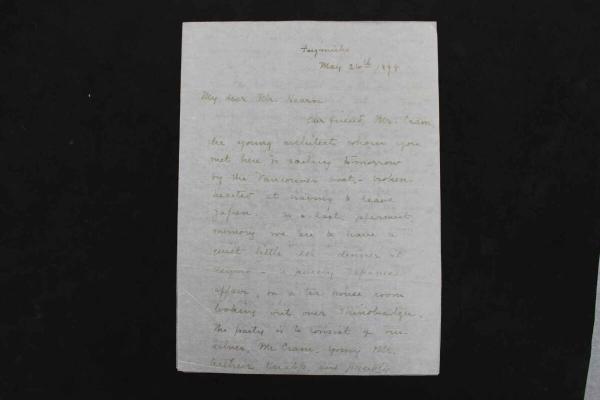 May 26th 1898
My dear Mr. Hearn
Our friend, Mr. Cram
the young architect whom you
met here is sailing tomorrow
by the Vancouver boat, - broken
hearted at having to leave
Japan. As a last, farewell
memory we are to have a
quiet little eel dinner at
- a purely Japanese
affair, in a tea house room
looking out over Shinobadzu.
The party is to consist of our-
selves, Mr Cram, young Mr.
Arthur Knapp, and possibly